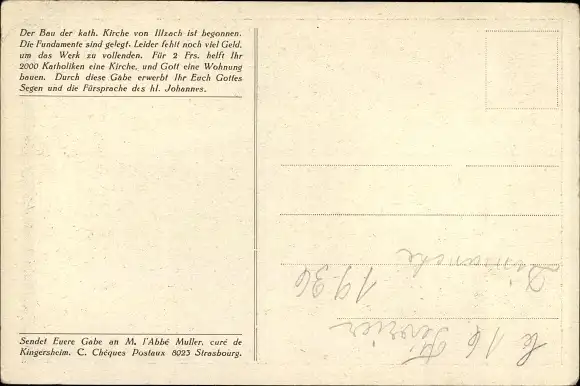 Der Bau der kath. Kirche von Illzach ist begonnen.
Die Fundamente sind gelegt. Leider fehlt noch viel Geld,
um das Werk zu vollenden. Für 2 Frs. helft Ihr
2000 Katholiken eine Kirche, und Gott eine Wohnung
bauen. Durch diese Gabe erwerbt Ihr Euch Gottes
Segen und die Fürsprache des hl. Johannes.
Sendet Euere Gabe an M. l'Abbé Muller, curé de
Kingersheim. C. Chéques Postaux 8023 Strasbourg.
le 16 Fevrier
1936
Dimanche